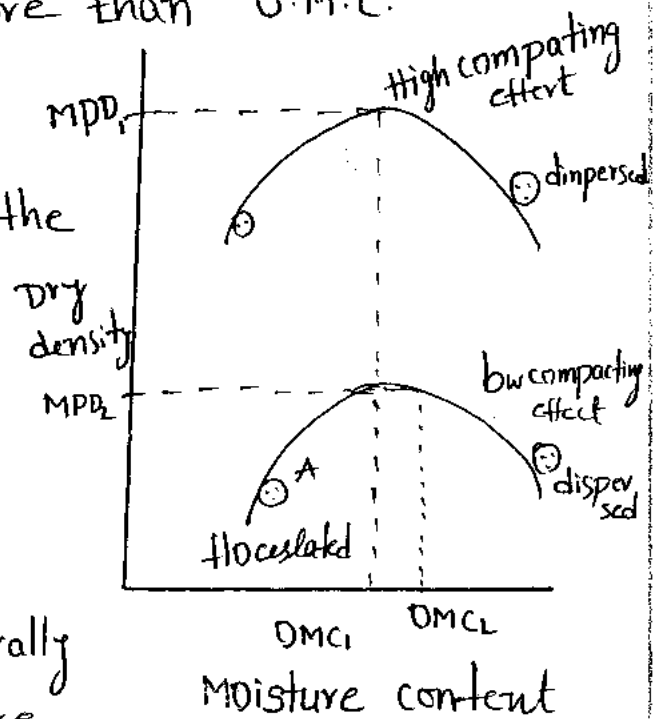 re than O.M.C.
High compating
effort
MPD1
dinpersed
the
Dry
density
MPD2
bw compacting
effect
A
disper
sed
flocculated
OMC1
OMC2
rally
Moisture content